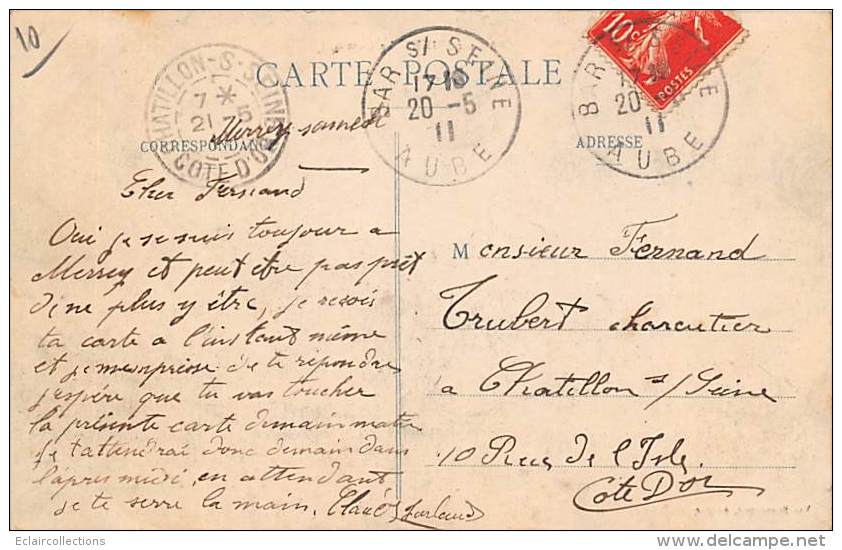 10
CHATILLON-S-SEINE
7 *
21 -5
11
COTE D'OR
CARTE POSTALE
BAR S/ SEINE
17 15
20 -5
11
AUBE
BAR S/ SEINE
20 -5
11
AUBE
10c
POSTES
Merrey samedi
CORRESPONDANCE
ADRESSE
Cher Fernand
Oui je suis toujour a
Merrey et peut être pas prêt
de ne plus y être, je reçois
ta carte a l'instant même
et je m'enpriese de te répondre
j'espére que tu vas toucher
la présente carte demain matin
je t'attendrai donc demain dans
l'apres midi, en attendant
je te serre la main.
Monsieur Fernand
Trubert charcutier
a Chatillon s/Seine
10 Rue de l'Isle
Cote D'or
Eclaircollections
delcampe.net